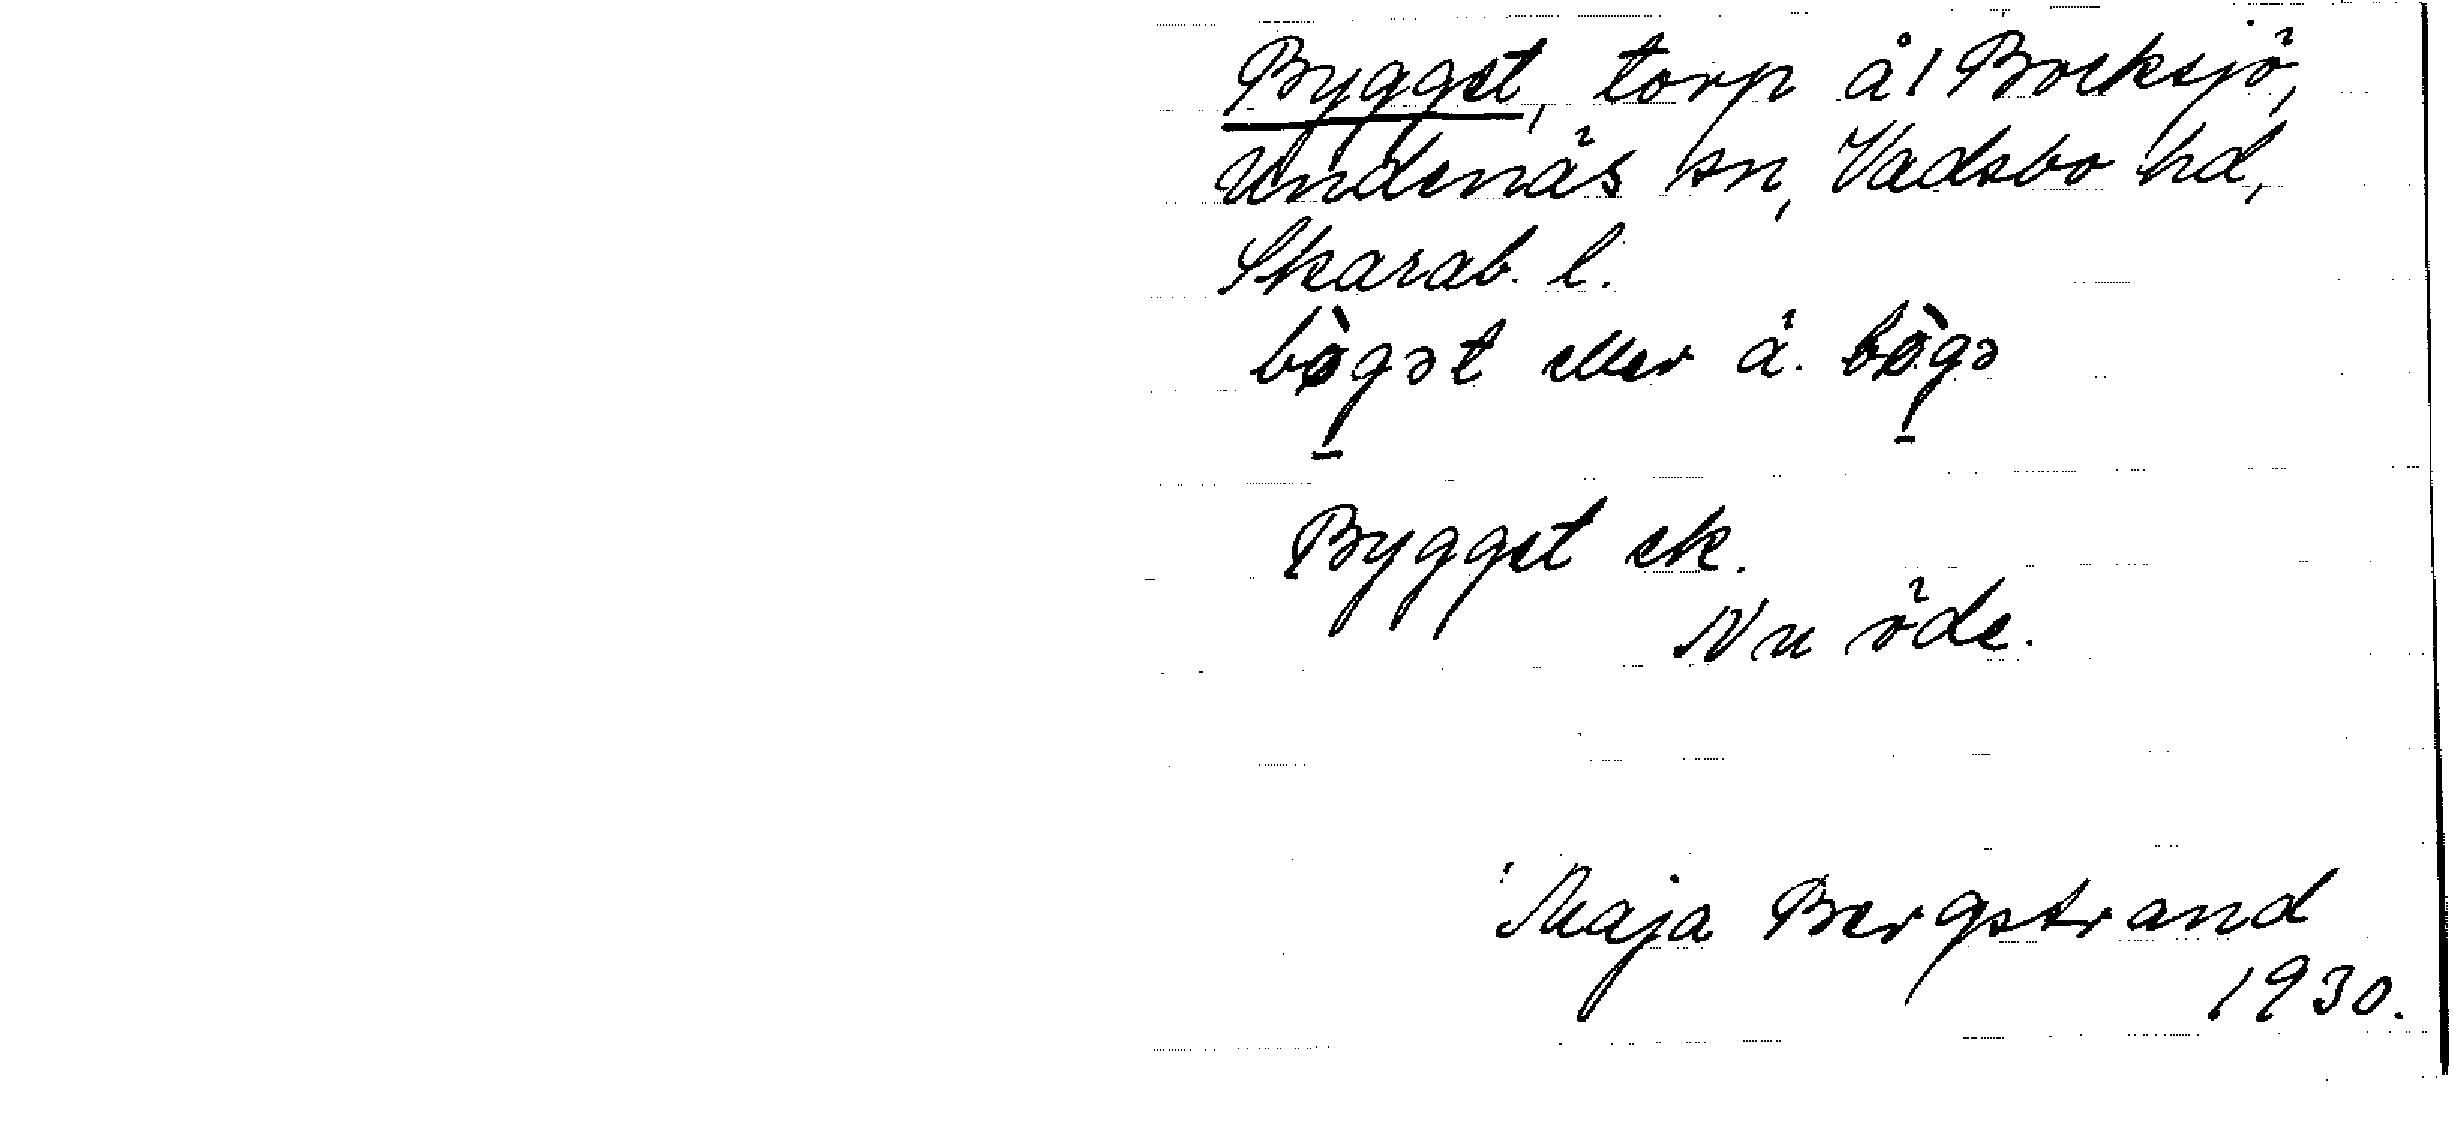 Bygget, torp å 1 Bocksjö,
Undenäs sn, Vadsbo hd,
Skarab. l.
bø̀gət eller ä. bø̀gə
Bygget ek.
Nu öde.
Maja Bergstrand
1930.